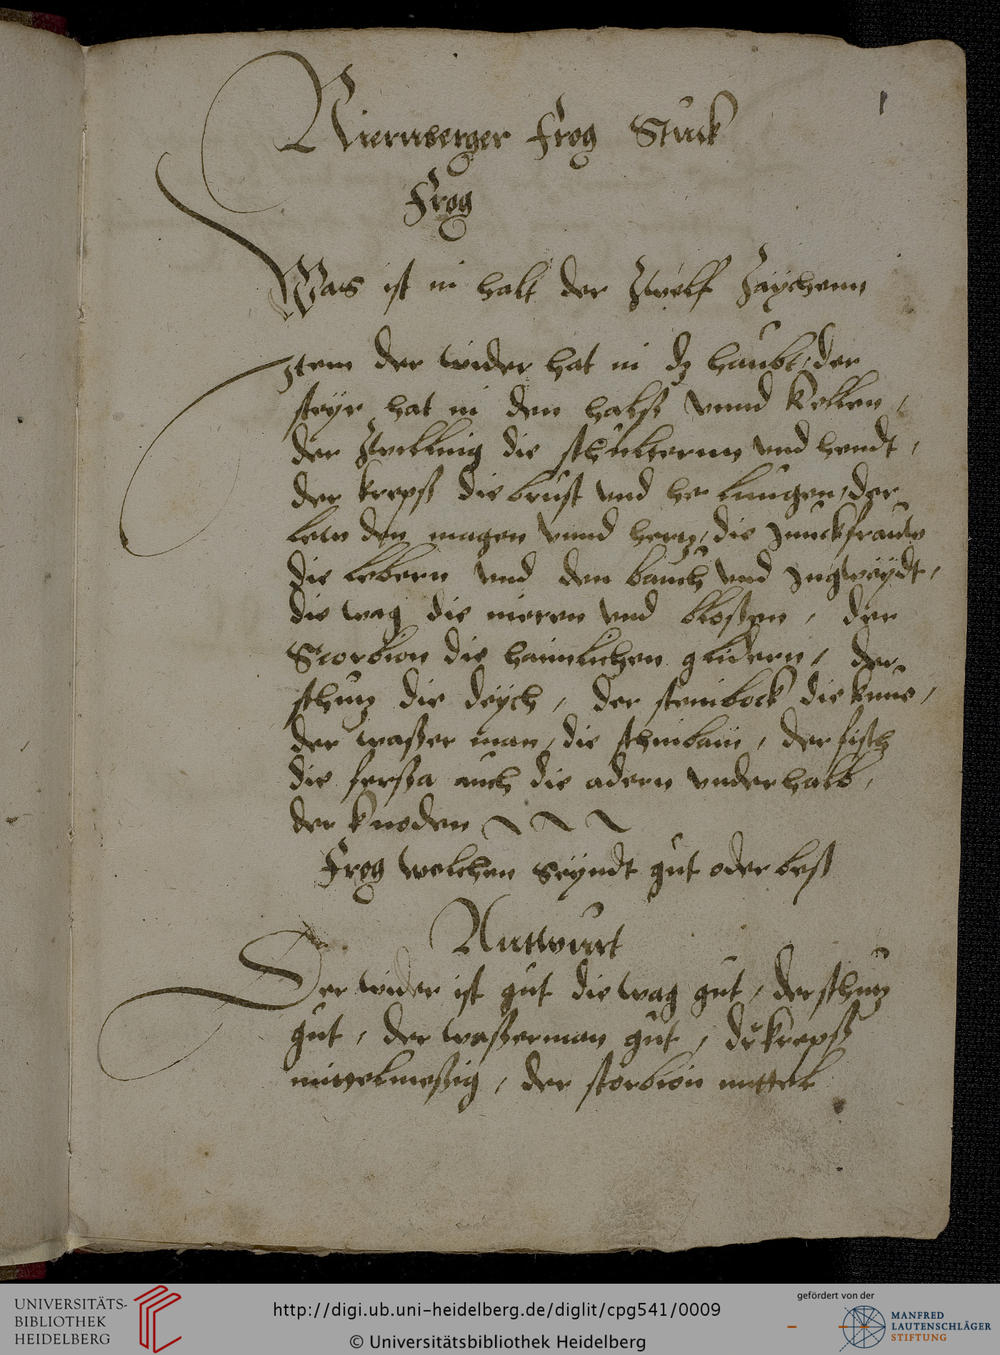 1
Niernberger Frog Stuck
Frog
Was ist in halt der Zwelf Zaychenn
Item der wider hat in dz haubt, der
steyr hat in den halß vnnd Kellen,
der Zwilling die schulternn vnd hendt,
der krepß die brust vnd he lungen, der
lew den magen vnnd hertz, die Junckfrauw
die lebern vnd den bauch vnd Ingweydt,
die wag die nieren vnd bloßen, der
Scorbion die haimlichen glidern, der
schutz die deych, der steinbock die knue,
der waßer man, die schinbain, der fisch
die ferßa auch die adern vnderhalb,
der knoden
Frog welchen Seyndt gut oder beß
Antwurt
Der wider ist gut die wag gut, der schutz
gut, der waßerman gut, der krepß
mittelmeßig, der storbion mittel
UNIVERSITÄTS-
BIBLIOTHEK
HEIDELBERG
http://digi.ub.uni-heidelberg.de/diglit/cpg541/0009
© Universitätsbibliothek Heidelberg
gefördert von der
MANFRED
LAUTENSCHLÄGER
STIFTUNG